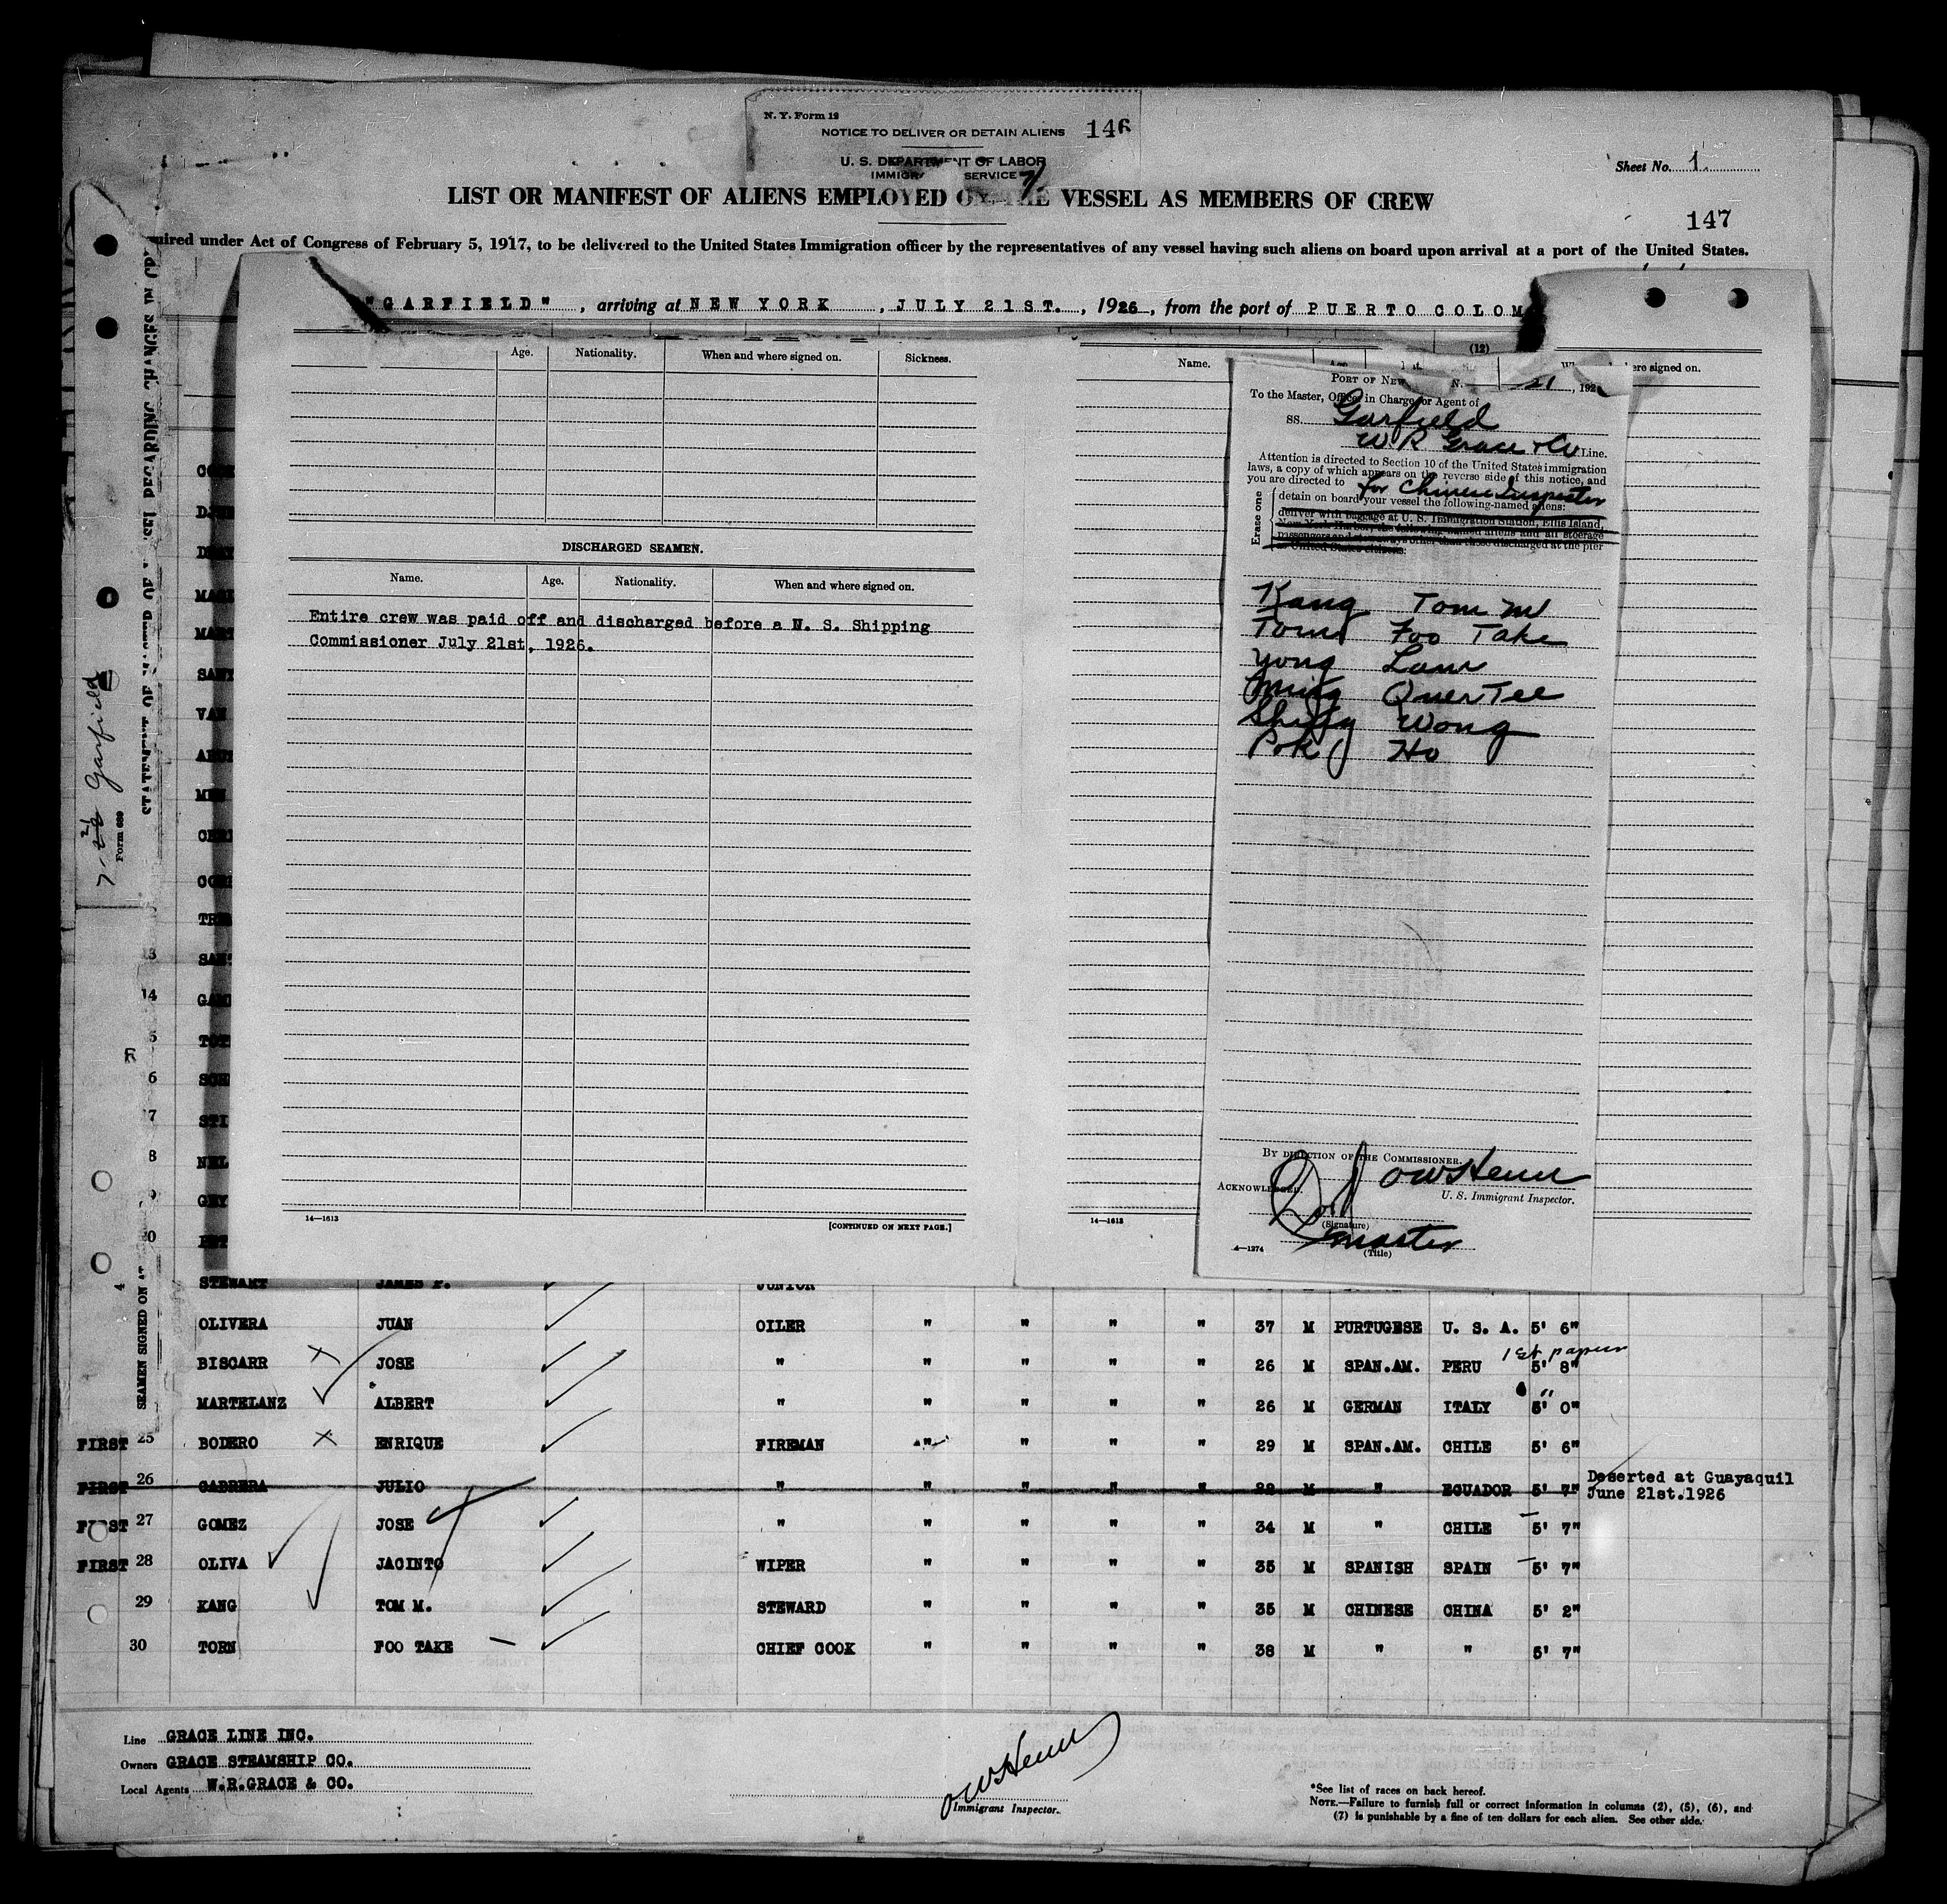 N. Y. Form 12
NOTICE TO DELIVER OR DETAIN ALIENS 146
U. S. DEPARTMENT OF LABOR
SERVICE
Sheet No. 1.
LIST OR MANIFEST OF ALIENS EMPLOYED ON THE VESSEL AS MEMBERS OF CREW
147
uired under Act of Congress of February 5, 1917, to be delivered to the United States Immigration officer by the representatives of any vessel having such aliens on board upon arrival at a port of the United States.
"GARFIELD", arriving at NEW YORK, JULY 21ST., 1926, from the port of PUERTO COLOM
Age. Nationality. When and where signed on. Sickness.
DISCHARGED SEAMEN.
Name. Age. Nationality. When and where signed on.
Entire crew was paid off and discharged before a U. S. Shipping
Commissioner July 21st, 1926.
14—1613 [CONTINUED ON NEXT PAGE.]
(12)
Name. ere signed on.
PORT OF NEW 21, 192
To the Master, Officer in Charge or Agent of
SS. Garfield
W R Grace & Co Line.
Attention is directed to Section 10 of the United States immigration
laws, a copy of which appears on the reverse side of this notice, and
you are directed to for Chinese Inspector
Erase one
detain on board your vessel the following-named aliens:
deliver with baggage at U. S. Immigration Station, Ellis Island,
New York Harbor, the following-named aliens and all steerage
passengers and stowaways other than those discharged at the pier
as United States citizens:
Kang Tom M
Torn Foo Take
Yong Lam
Ming Quer Tee
Wong
Pok Ho
BY DIRECTION OF THE COMMISSIONER.
O W Henn
U. S. Immigrant Inspector.
ACKNOWLEDGED.
(Signature)
Master
(Title)
4—1274
14—1613
7-21 Garfield
Form 680
STATEMENT OF MASTER OF VESSEL REGARDING CHANGES IN CR
SEAMEN SIGNED ON AT
STEWART JAMES F. JUNIOR
OLIVERA JUAN OILER " " " " 37 M PURTUGESE U. S. A. 5' 6"
1st papers
BISCARR JOSE " " " " " 26 M SPAN.AM. PERU 5' 8"
MARTELANZ ALBERT " " " " " 26 M GERMAN ITALY 5' 0"
FIRST 25 BODERO ENRIQUE FIREMAN " " " " 29 M SPAN.AM. CHILE 5' 6"
FIRST 26 CABRERA JULIO " " " " " 22 M " ECUADOR 5' 7" Deserted at Guayaquil
June 21st.1926
FIRST 27 GOMEZ JOSE " " " " " 34 M " CHILE 5' 7"
FIRST 28 OLIVA JACINTO WIPER " " " " 35 M SPANISH SPAIN 5' 7"
29 KANG TOM M. STEWARD " " " " 35 M CHINESE CHINA 5' 2"
30 TORN FOO TAKE CHIEF COOK " " " " 38 M " " 5' 7"
Line GRACE LINE INC.
Owners GRACE STEAMSHIP CO.
Local Agents W.R.GRACE & CO.
O W Henn
Immigrant Inspector.
*See list of races on back hereof.
NOTE.—Failure to furnish full or correct information in columns (2), (5), (6), and
(7) is punishable by a fine of ten dollars for each alien. See other side.